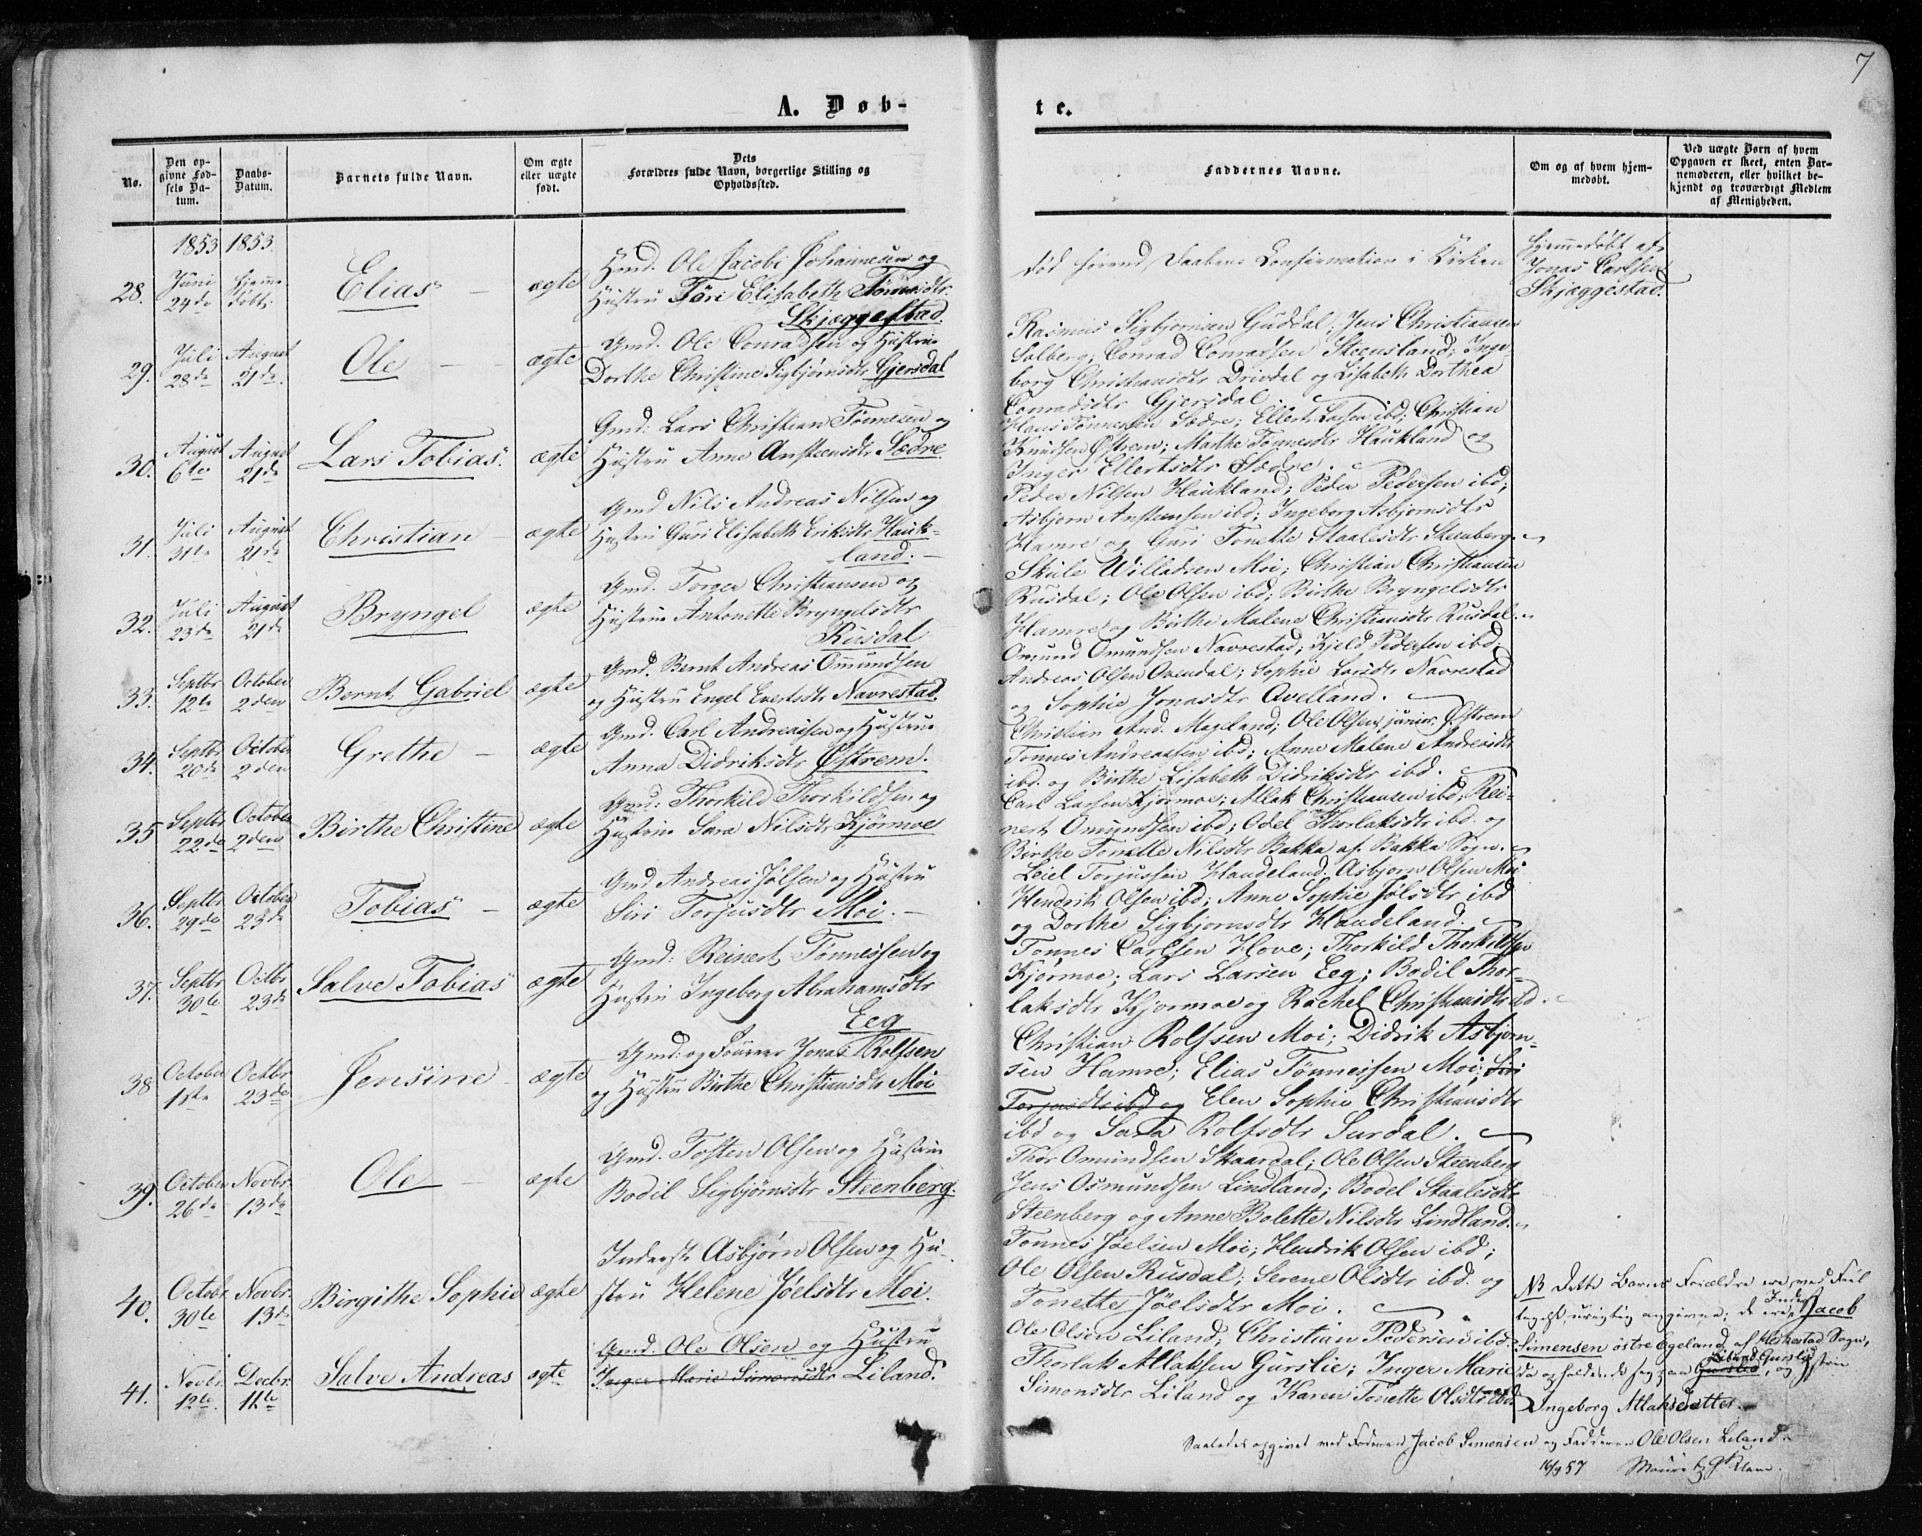 7
A. Døb-
te.
No.
Den op-
givne Fød-
sels Da-
tum.
Daabs-
Datum.
Barnets fulde Navn.
Om ægte
eller uægte
født.
Dets
Forældres fulde Navn, borgerlige Stilling og
Opholdssted.
Faddernes Navne.
Om og af hvem hjem-
medøbt.
Ved uægte Børn af hvem
Opgaven er skeet, enten Bar-
nemoderen, eller hvilket be-
kjendt og troværdigt Medlem
af Menigheden.
1853 1853.
28. Juni 24de Hjemme døbt. Elias ægte
Gmd. Ole Jacobi Johannesen og
Hustru Töri Elisabeth Tönnesdtr
Skjæggestad.
död förend Daabens Confirmation i Kirken
Hjemmedöbt af
Jonas Carlsen
Skjæggestad.
29. Juli 28de August 21de Ole ægte
Gmd. Ole Conradsen og Hustru
Dorthe Christine Sigbjørnsdtr Gjersdal
Rasmus Sigbjørnsen Guddal; Jens Christiansen
Solberg; Conrad Conradsen Steensland; Inge-
borg Christiansdtr Drivdal og Lisabeth Dorthea
Conradsdtr Gjersdal
30. August 6te August 21de Lars Tobias. ægte
Gmd: Lars Christian Tönnesen og
Hustru Anne Anstensdtr Sædre.
Hans Tönnesen Sædre; Ellert Larsen ibd; Christian
Knudsen Østrem; Marthe Tönnesdtr Haukland og
Inger Ellertsdtr Sædre.
31. Juli 31te August 21de Christian ægte
Gmd Nils Andreas Nilsen og
Hustru Guri Elisabeth Eriksdtr Hauk-
land.
Peder Nilsen Haukland; Peder Pedersen ibd;
Asbjørn Anstensen ibd; Ingeborg Asbjornsdtr
Hamre og Guri Tonette Staalesdtr Steenberg.
32. Juli 23de August 21de Bryngel ægte
Gmd. Torger Christiansen og
Hustru Antonette Bryngelsdtr
Rusdal
Skule Willadsen Moi; Christian Christiansen
Rusdal; Ole Olsen ibd; Birthe Bryngelsdtr
Hamre og Birthe Malene Christiansdtr Rusdal.
33. Septbr 12te October 2den Bernt Gabriel ægte
Gmd. Bernt Andreas Omundsen
og Hustru Engel Evertsdtr Navrestad.
Omund Omundsen Navrestad; Kjeld Pedersen ibd.
Andreas Olsen Ovendal; Sophie Larsdtr Navrestad
og Sophie Jonasdtr Avelland.
34. Septbr 20de October 2den Grethe ægte
Gmd. Carl Andreassen og Hustru
Anna Didriksdtr Østrem.
Christian And. Mageland; Ole Olsen junior Østrem
Tonnes Andreassen ibd; Anne Malene Andreasdtr
ibd. og Birthe Lisabeth Didriksdtr ibd.
35 Septbr 22de October 2den Birthe Christine ægte
Gmd: Thorkild Thorkildsen og
Hustru Sara Nilsdtr Kjörmoe
Carl Larsen Kjormoe; Atlak Christiansen ibd; Rei-
nert Omundsen ibd; Odel Thorlaksdtr ibd. og
Birthe Tonette Nilsdtr Bakka af Bakka Sogn.
36. Septbr 29de October 23de Tobias ægte
Gmd. Andreas Jölsen og Hustru
Siri Torjusdtr Moi.
Leiel Torjussen Haudeland. Asbjorn Olsen Moi
Hendrik Olsen ibd; Anne Sophie Jölsdtr ibd
og Dorthe Sigbjornsdtr Haudeland.
37. Septbr 30te Octbr 23de Salve Tobias ægte
Gmd: Reinert Tönnessen og
Hustru Ingeborg Abrahamsdtr
Eeg
Tonnes Carlsen Hove; Thorkild Thorkildsen
Kjormoe; Lars Larsen Eeg; Bodil Thor-
laksdtr Kjormoe og Rachel Christiansdtr ibd.
38 October 1ste Octbr 23de Jensine ægte
Gmd: og Jonas Rolfsen
og Hustru Birthe Christiansdtr Moi
Christian Rolfsen Moi; Didrik Asbjorn-
sen Hamre; Elias Tönnessen Moi; Siri
Torjusdtr ibd og Elen Sophie Christiansdtr
ibd og Sara Rolfsdtr Surdal.
39. October 26de Novbr. 13de Ole ægte
Gmd. Tosten Olsen og Hustru
Bodil Sigbjörnsdtr Steenberg.
Thor Omundsen Skaardal; Ole Olsen Steenberg
Jens Osmundsen Lindland; Bodel Staalesdtr
Steenberg og Anne Bolette Nilsdtr Lindland.
40. October 30te Novbr. 13de Birgithe Sophie ægte
Inderst Asbjørn Olsen og Hu-
stru Helene Jöelsdtr Moi.
Tonnes Jöelsen Moi; Hendrik Olsen ibd;
Ole Olsen Rusdal; Serene Olsdtr ibd. og
Tonette Jöelsdtr Moi.
41. Novbr. 12te Decbr. 11te Salve Andreas ægte
Gmd. Ole Olsen og Hustru
Inger Marie Simonsdtr Liland.
Ole Olsen Liland; Christian Pedersen ibd.
Thorlak Atlaksen Gurslie; Inger Marie
Simonsdtr Liland og Karen Tonette Olsdtr ibd.
NB Dette Barns Forældre ere ved Feil
tagelse urigtig angivne; de ere Inderst Jacob
Simensen östre Egeland af Heskestad Sogn,
og Hustru
Ingeborg Atlaksdatter.
Saaledes opgivet med Faderen Jacob Simensen og Fadderen Ole Olsen Liland.
16/9 57